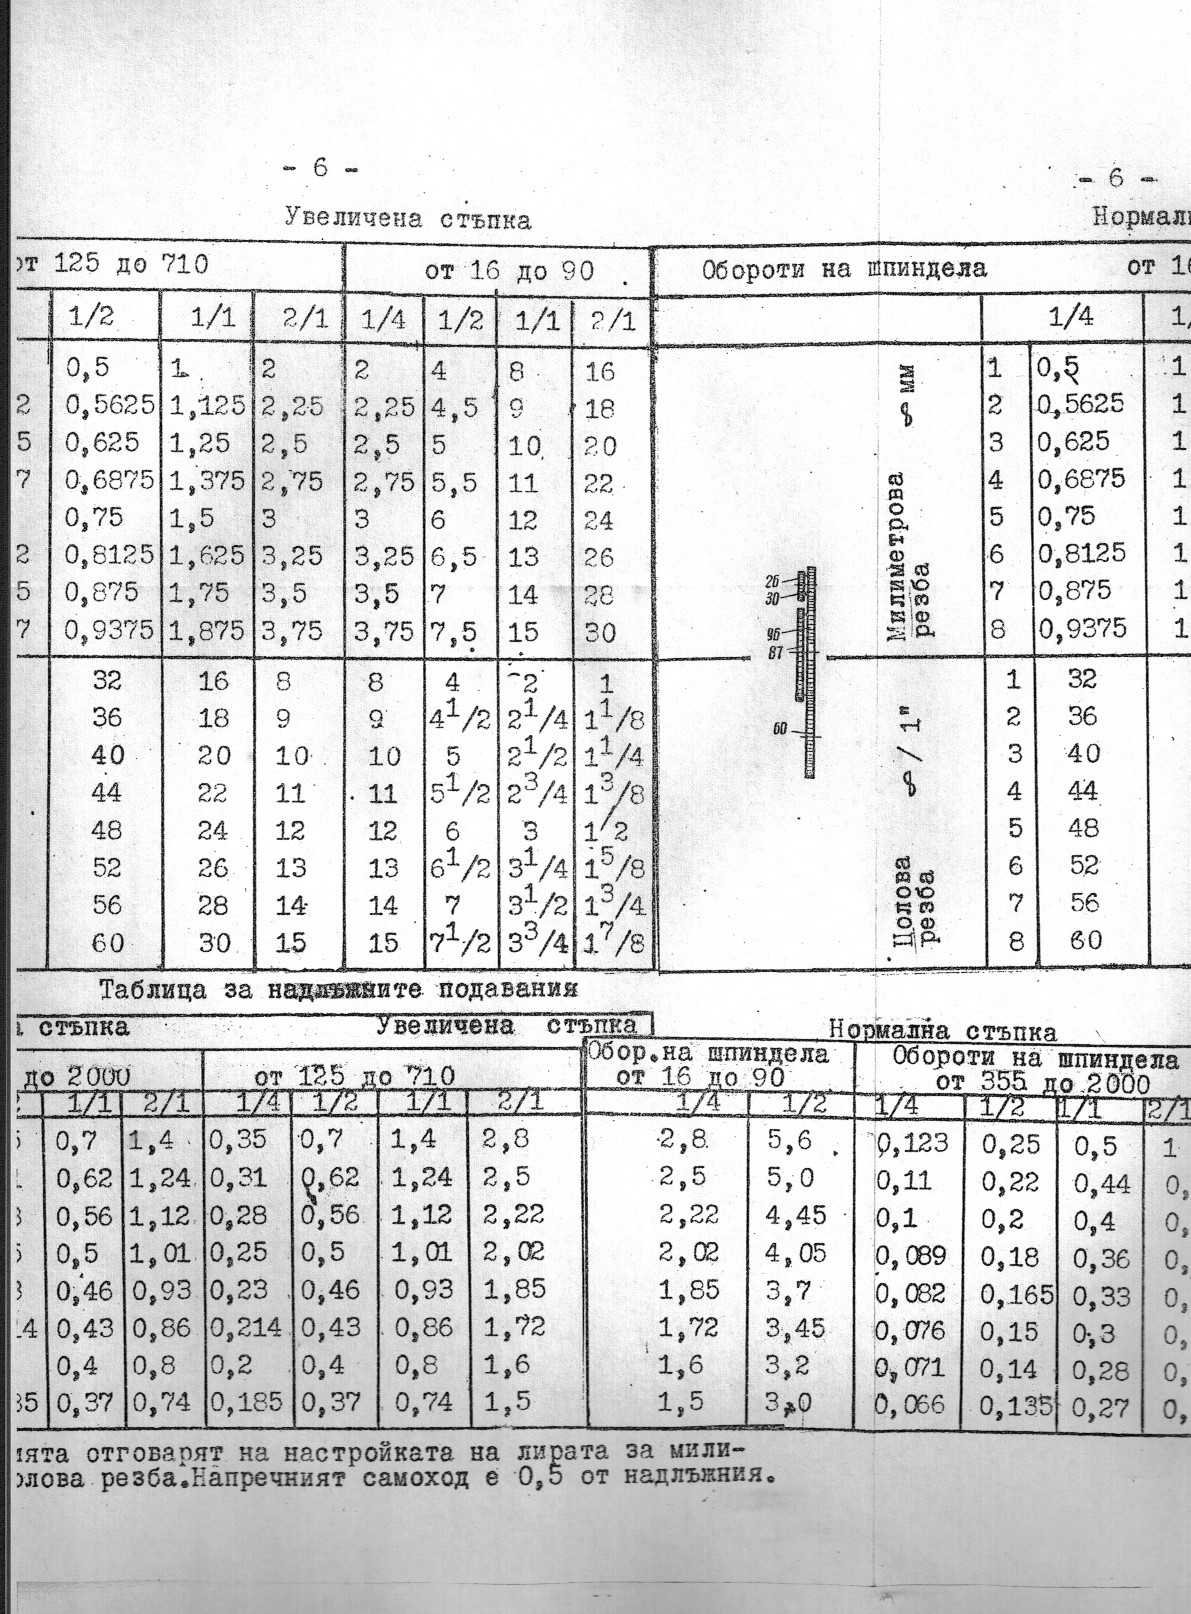 - 6 -
Увеличена стъпка
от 125 до 710 от 16 до 90
1/2 1/1 2/1 1/4 1/2 1/1 2/1
0,5 1 2 2 4 8 16
2 0,5625 1,125 2,25 2,25 4,5 9 18
5 0,625 1,25 2,5 2,5 5 10 20
7 0,6875 1,375 2,75 2,75 5,5 11 22
0,75 1,5 3 3 6 12 24
2 0,8125 1,625 3,25 3,25 6,5 13 26
5 0,875 1,75 3,5 3,5 7 14 28
7 0,9375 1,875 3,75 3,75 7,5 15 30
32 16 8 8 4 2 1
36 18 9 9 4 1/2 2 1/4 1 1/8
40 20 10 10 5 2 1/2 1 1/4
44 22 11 11 5 1/2 2 3/4 1 3/8
48 24 12 12 6 3 1/2
52 26 13 13 6 1/2 3 1/4 1 5/8
56 28 14 14 7 3 1/2 1 3/4
60 30 15 15 7 1/2 3 3/4 1 7/8
- 6 -
Нормалн
Обороти на шпиндела от 16
1/4 1/
Милиметрова резба мм
1 0,5 1
2 0,5625 1
3 0,625 1
4 0,6875 1
5 0,75 1
6 0,8125 1
7 0,875 1
8 0,9375 1
26
30
96
87
60
Цолова резба / 1"
1 32
2 36
3 40
4 44
5 48
6 52
7 56
8 60
Таблица за надлъжните подавания
а стъпка Увеличена стъпка
до 2000 от 125 до 710
1/1 2/1 1/4 1/2 1/1 2/1
0,7 1,4 0,35 0,7 1,4 2,8
0,62 1,24 0,31 0,62 1,24 2,5
0,56 1,12 0,28 0,56 1,12 2,22
0,5 1,01 0,25 0,5 1,01 2,02
0,46 0,93 0,23 0,46 0,93 1,85
14 0,43 0,86 0,214 0,43 0,86 1,72
0,4 0,8 0,2 0,4 0,8 1,6
85 0,37 0,74 0,185 0,37 0,74 1,5
Нормална стъпка
Обор.на шпиндела Обороти на шпиндела
от 16 до 90 от 355 до 2000
1/4 1/2 1/4 1/2 1/1 2/1
2,8 5,6 0,123 0,25 0,5 1
2,5 5,0 0,11 0,22 0,44 0,
2,22 4,45 0,1 0,2 0,4 0,
2,02 4,05 0,089 0,18 0,36 0,
1,85 3,7 0,082 0,165 0,33 0,
1,72 3,45 0,076 0,15 0,3 0,
1,6 3,2 0,071 0,14 0,28 0,
1,5 3,0 0,066 0,135 0,27 0,
ията отговарят на настройката на лирата за мили-
олова резба.Напречният самоход е 0,5 от надлъжния.